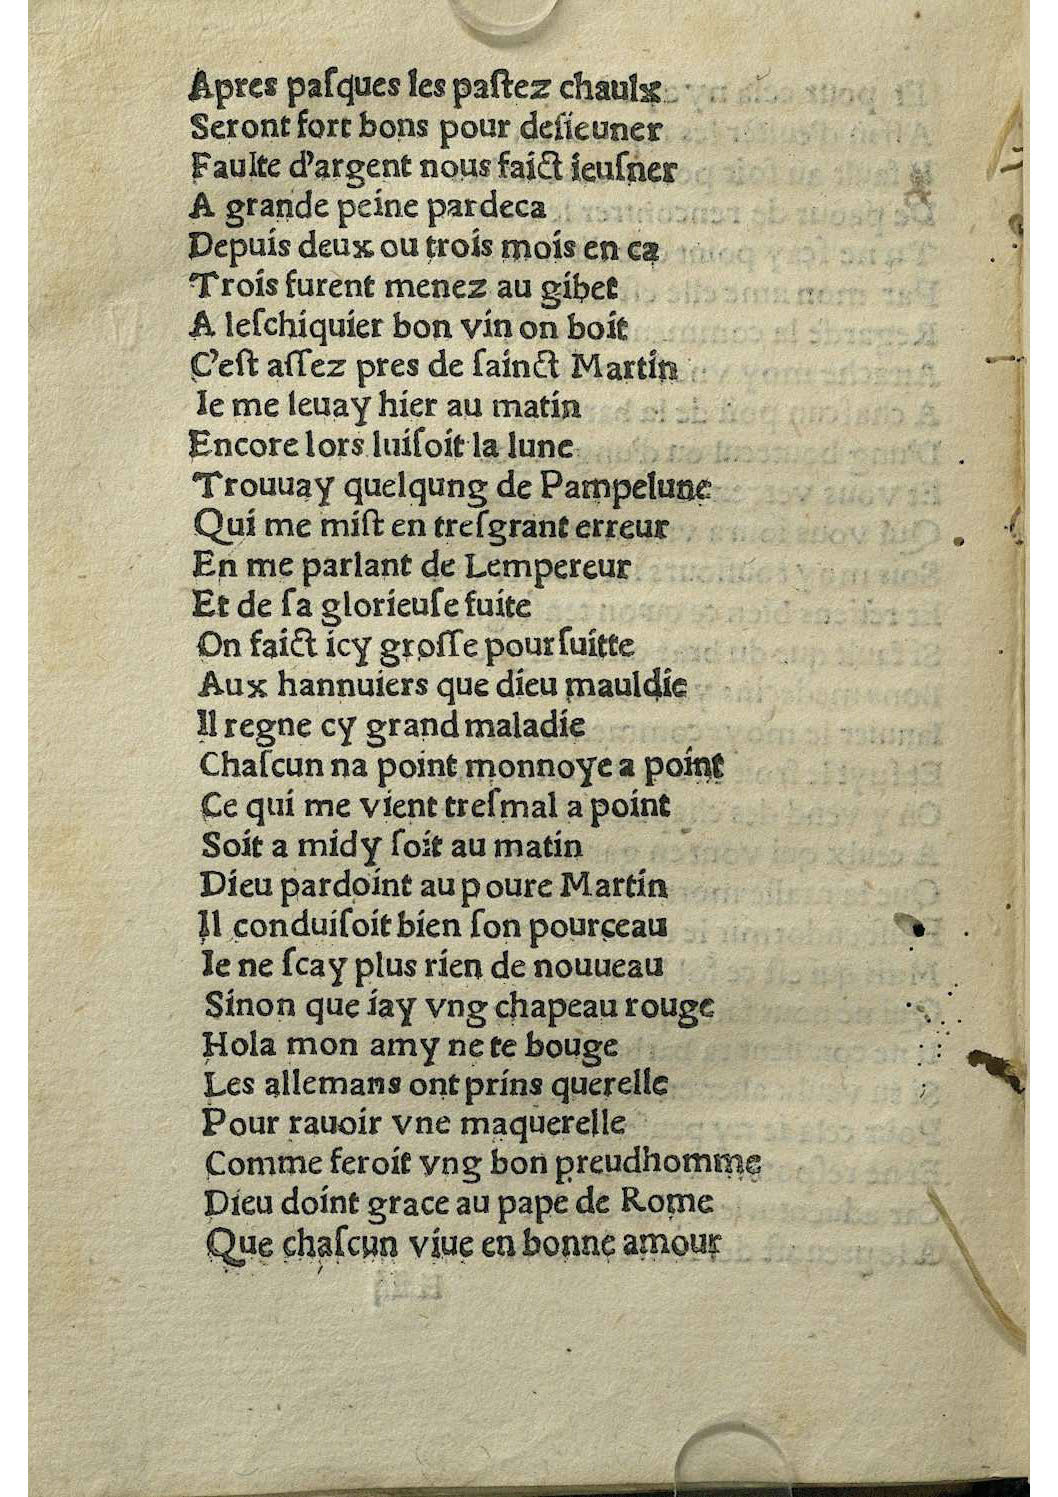 Apres paſques les paſtez chaulx
Seront fort bons pour deſieuner
Faulte d'argent nous faict ieuſner
A grande peine pardeca
Depuis deux ou trois mois en ca
Trois furent menez au gibet
A leſchiquier bon vin on boit
C'eſt aſſez pres de ſainct Martin
Ie me leuay hier au matin
Encore lors luiſoit la lune
Trouuay quelqung de Pampelune
Qui me miſt en treſgrant erreur
En me parlant de Lempereur
Et de ſa glorieuſe fuite
On faict icy groſſe pourſuitte
Aux hannuiers que dieu mauldie
Il regne cy grand maladie
Chaſcun na point monnoye a point
Ce qui me vient treſmal a point
Soit a midy ſoit au matin
Dieu pardoint au poure Martin
Il conduiſoit bien ſon pourceau
Ie ne ſcay plus rien de nouueau
Sinon que iay vng chapeau rouge
Hola mon amy ne te bouge
Les allemans ont prins querelle
Pour rauoir vne maquerelle
Comme feroit vng bon preudhomme
Dieu doint grace au pape de Rome
Que chaſcun viue en bonne amour